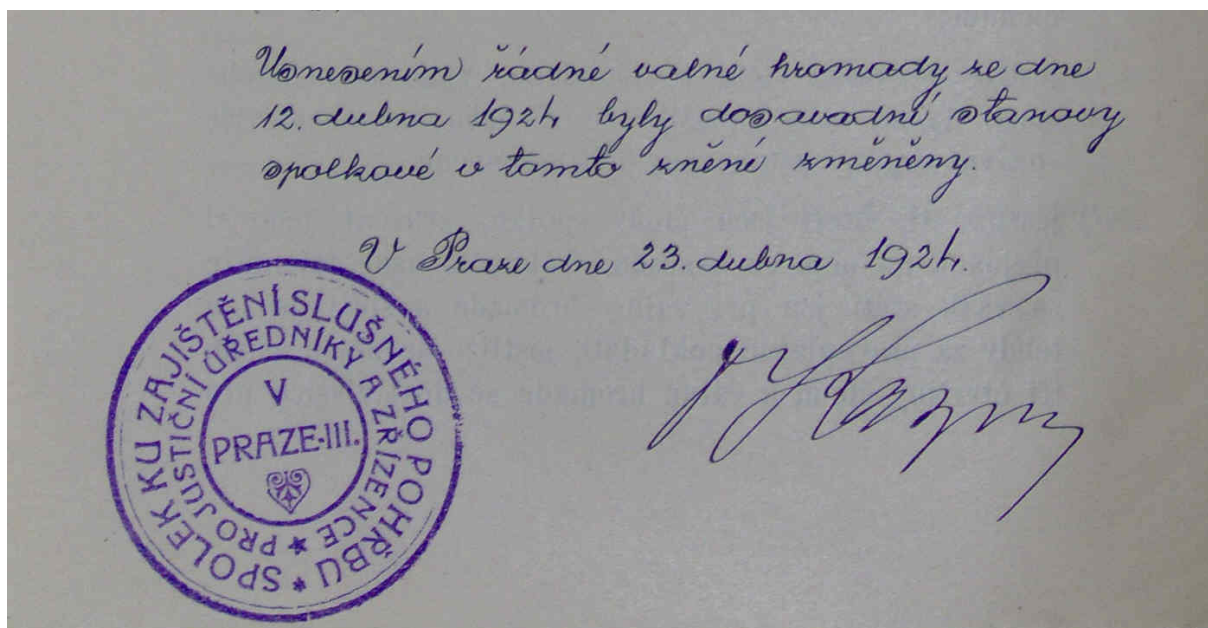 Usnesením řádné valné hromady ze dne
12. dubna 1924 byly dosavadní stanovy
spolkové v tomto znění změněny.
V Praze dne 23. dubna 1924.
SPOLEK KU ZAJIŠTĚNÍ SLUŠNÉHO POHŘBU *
PRO JUSTIČNÍ ÚŘEDNÍKY A ZŘÍZENCE *
V
PRAZE-III.